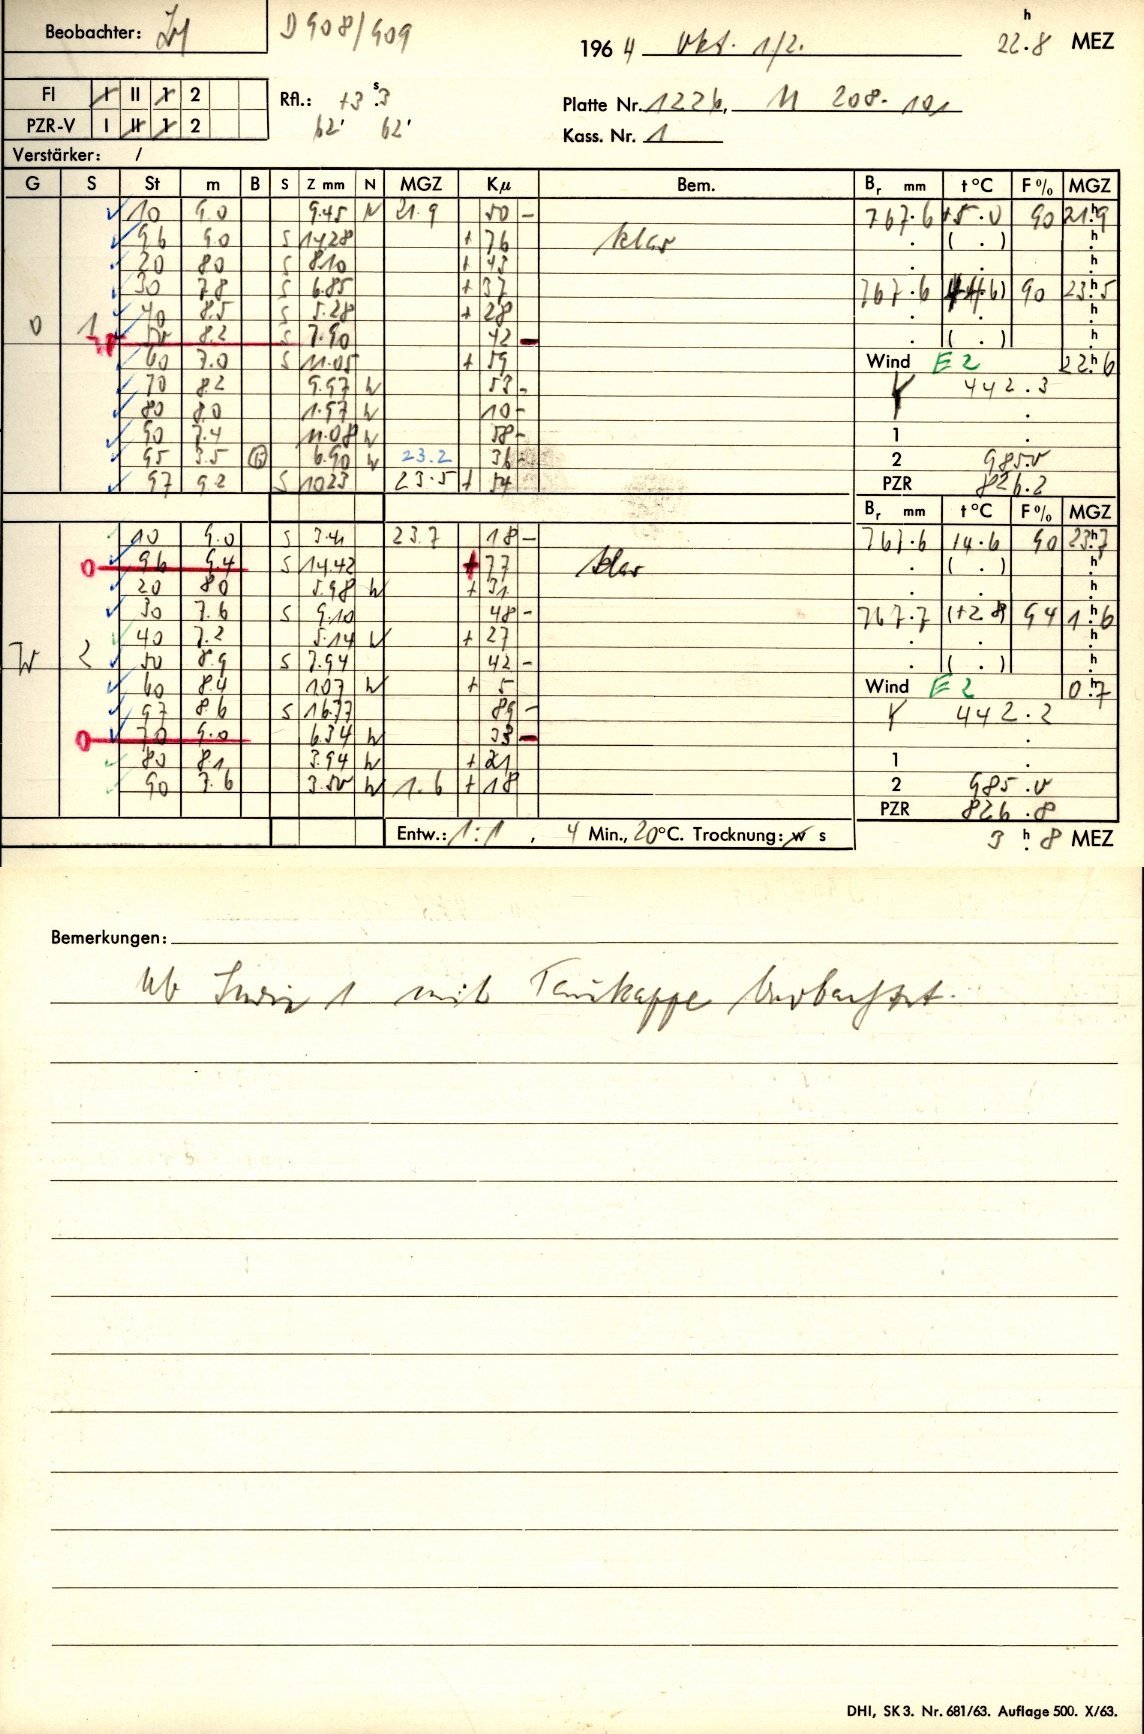 Beobachter:
D 908/909
1964 Okt. 1/2. 22h.8 MEZ
FI I II 1 2
Rfl.: +3s.3
Platte Nr. 1226,
PZR-V I II 1 2
62' 62'
Kass. Nr. 1
Verstärker: /
G S St m B S Z mm N MGZ Kµ Bem. Br mm t°C F% MGZ
10 9.0 9.45 N 21.9 50 - 767.6 +5.0 90 21h9
96 9.0 S 14.28 + 76 klar . ( . ) h
20 8.0 S 8.10 + 43
30 7.8 S 6.85 + 37 767.6 90 23h5
40 8.5 S 5.28 + 28
O 1 50 8.2 S 7.90 42 - . ( . ) h
60 7.0 S 11.05 + 59 Wind E 2 22h6
70 8.2 9.97 W 53 - 442.3
80 8.0 1.97 W 10 -
90 7.4 11.08 W 58 - 1 .
95 3.5 6.90 W 23.2 36 - 2 985.0
97 9.2 S 10.23 23.5 + 54 PZR 826.2
Br mm t°C F% MGZ
10 9.0 S 3.41 23.7 18 - 767.6 14.6 90 23h7
96 9.4 S 14.42 + 77 klar . ( . ) h
20 8.0 5.98 W + 31
30 7.6 S 9.10 48 - 767.7 (+2.8) 94 1h6
40 7.2 5.14 W + 27
W 2 50 8.9 S 7.94 42 - . ( . ) h
60 8.4 1.07 W + 5 Wind E 2 0h7
97 8.6 S 16.77 89 - 442.2
70 9.0 6.34 W 33 -
80 8.1 3.94 W + 21 1 .
90 7.6 3.50 W 1.6 + 18 2 985.0
PZR 826.8
Entw.: 1:1, 4 Min., 20°C. Trocknung: w s 3h.8 MEZ
Bemerkungen:
1 mit Taukappe beobachtet.
DHI, SK 3. Nr. 681/63. Auflage 500. X/63.